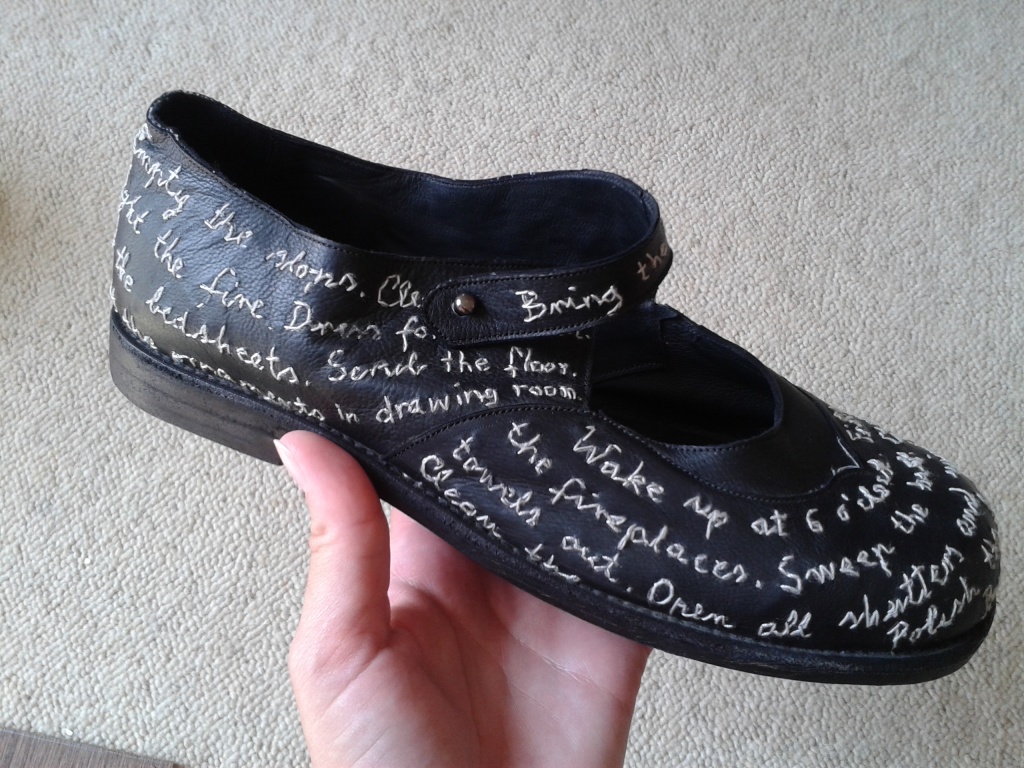 Empty the slops. Cle
ght the fire. Dress fo
the bedsheets. Scrub the floor.
the ornaments in drawing room.
Bring the
Wake up at 6 o'clock
the fireplaces. Sweep the
towels out. Open all shutters and
Clean the
Polish